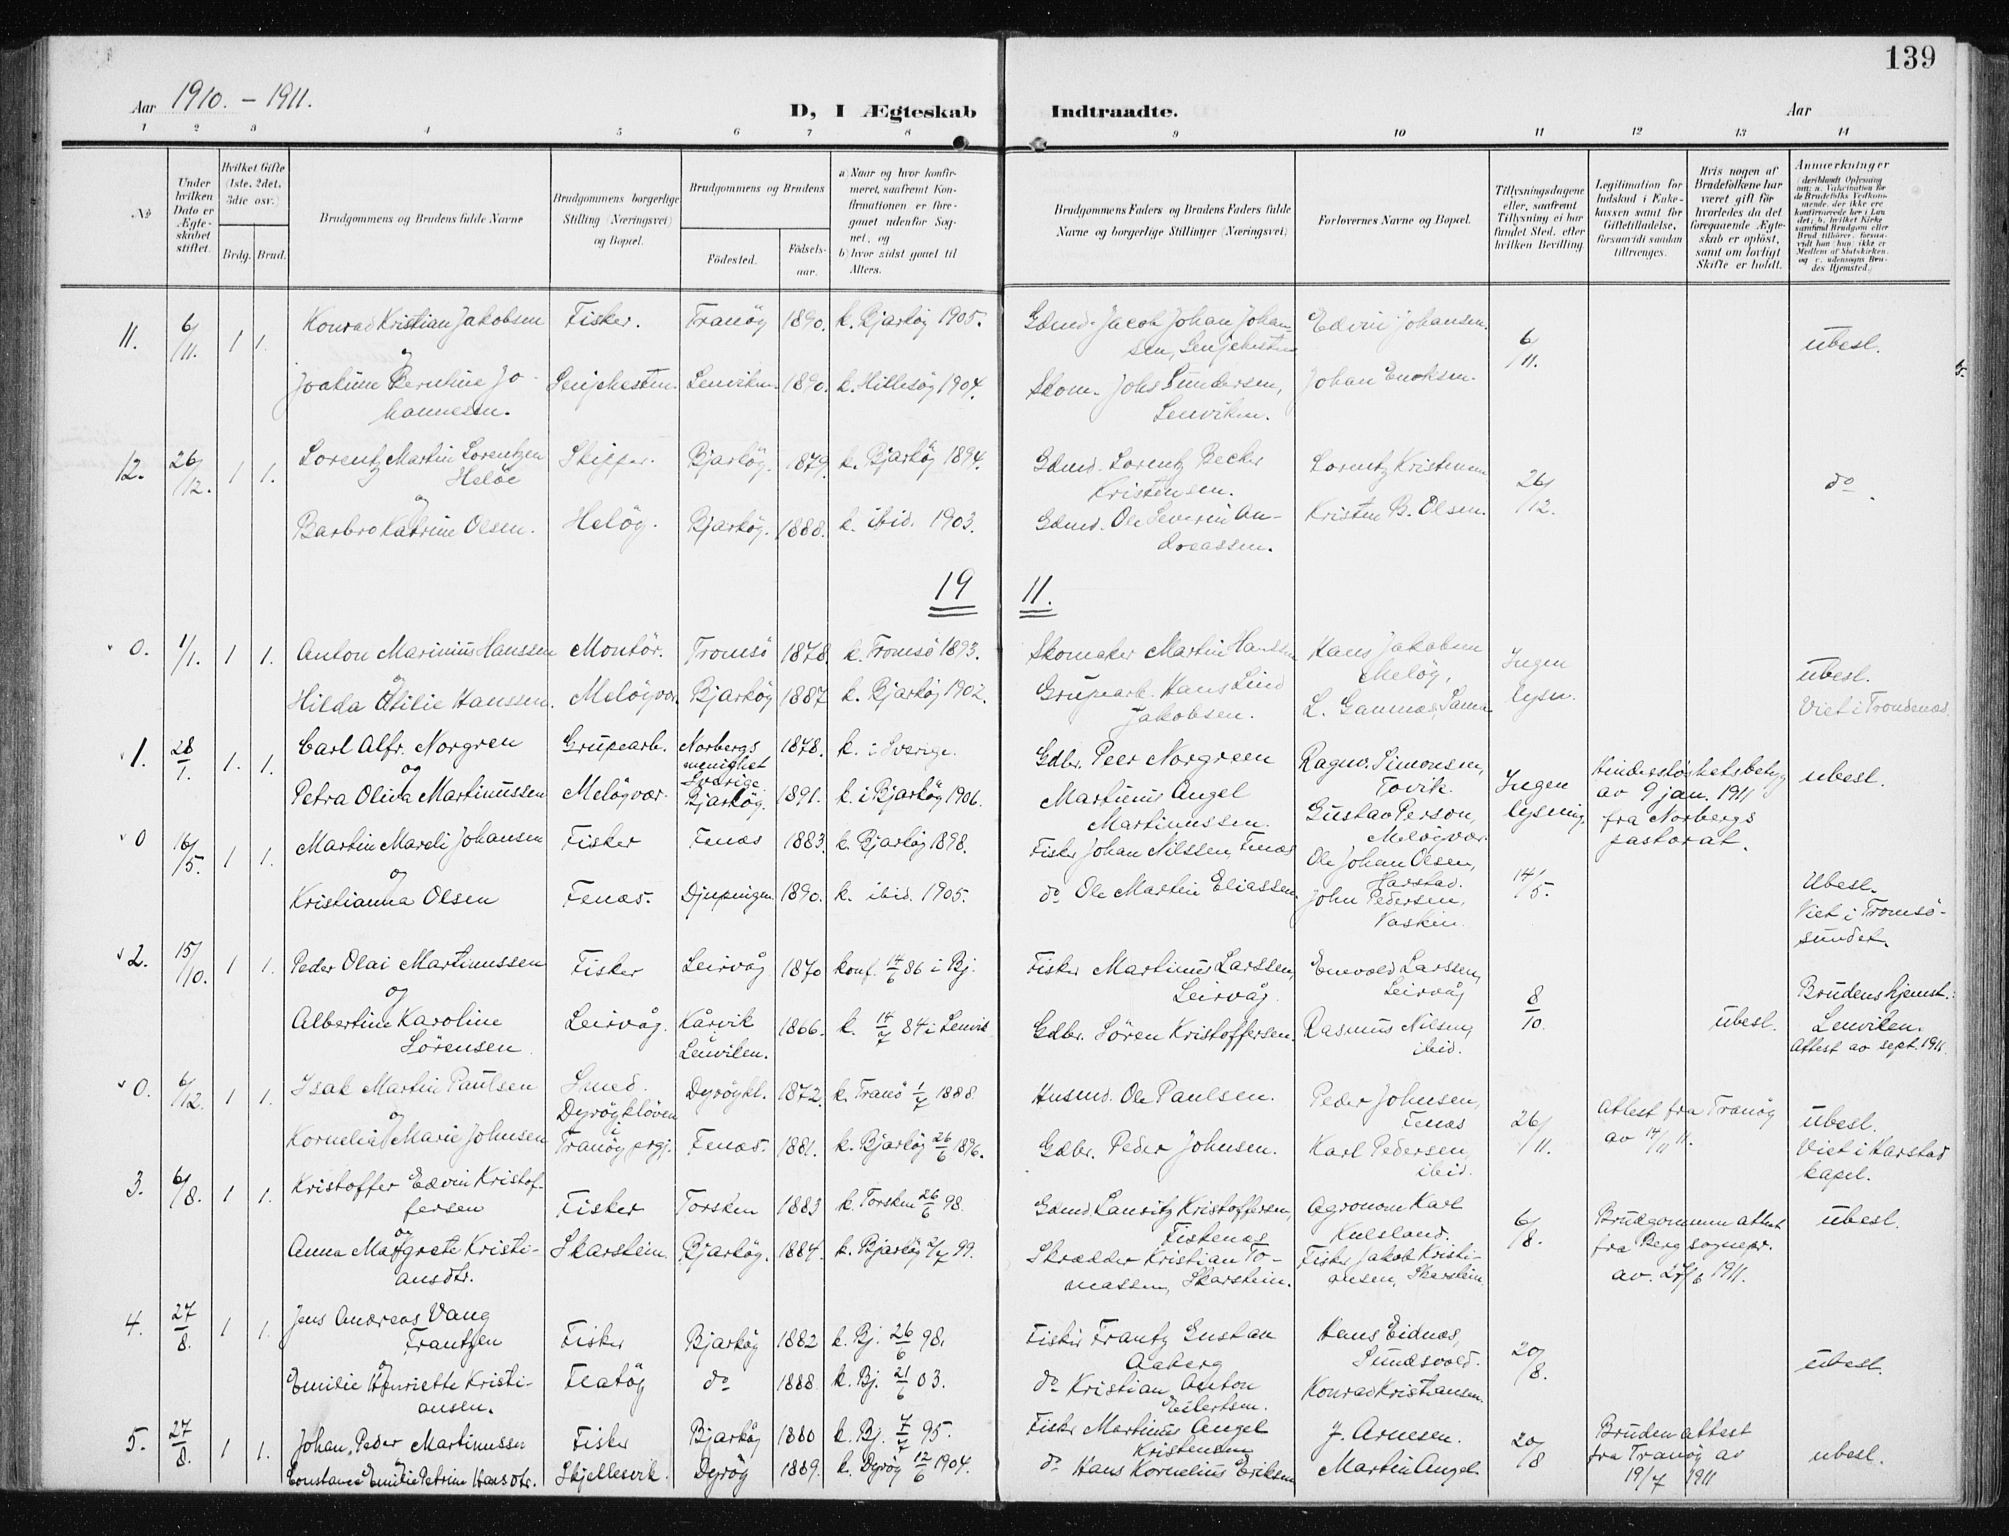 139
Aar 1910. - 1911.
D, I Ægteskab Indtraadte.
Aar
1 2 3 4 5 6 7 8 9 10 11 12 13 14
No
Under hvilken Dato er Ægteskabet stiftet.
Hvilket Gifte (1ste, 2det, 3die osv.)
Brdg. Brud.
Brudgommens og Brudens fulde Navne
Brudgommens borgerlige Stilling (Næringsvei) og Bopæl.
Brudgommens og Brudens
Födested. Födselsaar.
a) Naar og hvor konfirmeret, saafremt Konfirmationen er foregaaet udenfor Sognet, og
b) hvor sidst gaaet til Alters.
Brudgommens Faders og Brudens Faders fulde Navne og borgerlige Stillinger (Næringsvei)
Forlovernes Navne og Bopæl.
Tillysningsdagene eller, saafremt Tillysning ei har fundet Sted, efter hvilken Bevilling.
Legitimation for Indskud i Enkekassen samt for Giftetilladelse, forsaavidt saadan tiltrænges.
Hvis nogen af Brudefolkene har været gift för hvorledes da det foregaaende Ægteskab er oplöst, samt om lovligt Skifte er holdt.
Anmerkninger
11. 6/11. 1 1. Konrad Kristian Jakobsen Fisker. Tranöy 1890. k. Bjarköy 1905. Gdmd. Jacob Johan Johansen, Senjehesten Edvin Johansen. 6/11. ubesl.
og
Joakime Bernhine Johannesen. Senjehesten. Lenviken. 1890. k. Hillesöy 1904. Skom. Johs Gundersen, Lenviken. Johan Enoksen.
12. 26/12. 1 1. Lorentz Martin Lorentzen Helöe Skipper. Bjarköy. 1879. k. Bjarköy 1894. Gdmd. Lorentz Becker Kristensen. Lorentz Kristensen 26/12. do.
og
Barbro Katrine Olsen. Helöy. Bjarköy. 1888. k. ibid. 1903. Gdmd. Ole Severin Andreassen. Kristen B. Olsen.
19 11.
0. 1/1. 1 1. Anton Marinius Hanssen Montör. Tromsö 1878. k. Tromsö 1893. Skomaker Martin Hanssen Hans Jakobsen Melöy, Ingen lysn. ubesl.
og
Hilda Otilie Hanssen. Melöyvær. Bjarköy 1887 k. Bjarköy 1902. Grupearb. Hans Lind Jakobsen. L. Gannæs, Sama Viet i Trondenæs.
1. 28/1. 1. 1. Carl Alfr. Norgren Grupearb. Norbergs menighet Sverige 1878. k. i Sverige. Gdbr. Peer Norgreen Ragnv. Simonsen, Tovik. Ingen lysning. Hindersløshetsbetyg av 9 jan. 1911 fra Norbergs pastorat. ubesl.
og
Petra Oliva Martinussen Melöyvær. Bjarköy. 1891. k. i Bjarköy 1906. Martinus Angel Martinussen. Gustav Person, Melöyvær.
0 16/5. 1 1. Martin Mareli Johansen Fisker Fenæs 1883. k. Bjarköy 1898. Fisker Johan Nilssen, Fenæs Ole Johan Olsen, Harstad. 14/5. Ubesl.
og
Kristianna Olsen Fenæs. Djupvigen 1890. k. ibid. 1905. do Ole Martin Eliassen John Pedersen, Vaskin. Viet i Tromsösundet.
2. 15/10. 1 1. Peder Olai Martinussen Fisker Leirvåg 1870 konf. 14/6 86 i Bj. Fisker Martinus Larssen, Leirvåg. Enevold Larssen, Leirvåg 8/10. Brudens hjemst.: Lenviken.
og
Albertine Karoline Sörensen Leirvåg. Kårvik Lenviken. 1866. k. 14/7 84 i Lenvik Gdbr. Sören Kristoffersen. Rasmus Nilsen, ibid. ubesl. Attest av sept. 1911.
0. 6/12. 1 1. Isak Martin Paulsen Smed. Dyröyklöven i Tranöy prgj. Dyröykl. 1872. k. Tranö 1/7 1888. Husmd. Ole Paulsen. Peder Johnsen, Fenæs 26/11. Attest fra Tranöy av 14/11 11. ubesl.
og
Kornelia Marie Johnsen Fenæs. 1881. k. Bjarköy 26/6 1896. Gdbr. Peder Johnsen. Karl Pedersen, ibid. Viet i Harstad kapel.
3. 6/8. 1 1. Kristoffer Edvin Kristoffersen Fisker Torsken 1883 k. Torsken 26/6 98. Gdmd. Lauritz Kristoffersen, Fiskenæs Agronom Karl Kulsland. 6/8. Brudgommen attest fra Berg sognepr. av. 27/6 1911. ubesl.
og
Anna Margrete Kristiansdtr. Skarstein. Bjarköy. 1884. k. Bjarköy 2/7 99. Skrædder Kristian Tomassen, Skarstein. Fisker Jakob Kristiansen, Skarstein
4. 27/8. 1 1. Jens Andreas Vang Frantzen Fisker Bjarköy 1882 k. Bj. 26/6 98. Fisker Frantz Gustav Aaberg Hans Eidnæs, Sundsvold. 20/8. ubesl.
og
Emilie Henriette Kristiansen. Flatöy do 1888. k. Bj. 21/6 03. do Kristian Anton Eilertsen. Konrad Kristiansen.
5. 27/8. 1 1. Johan Peder Martinussen Fisker Bjarköy 1880 k. Bj. 7/7 95. Fisker Martinus Angel Kristensen J. Arnesen. 20/8 Bruden attest fra Tranöy av 19/7 1911 ubesl.
Constance Emilie Petrine Hansdtr. Skjellesvik. Dyröy 1889. k. Dyröy 12/6 1904. do Hans Kornelius Eriksen Martin Angel